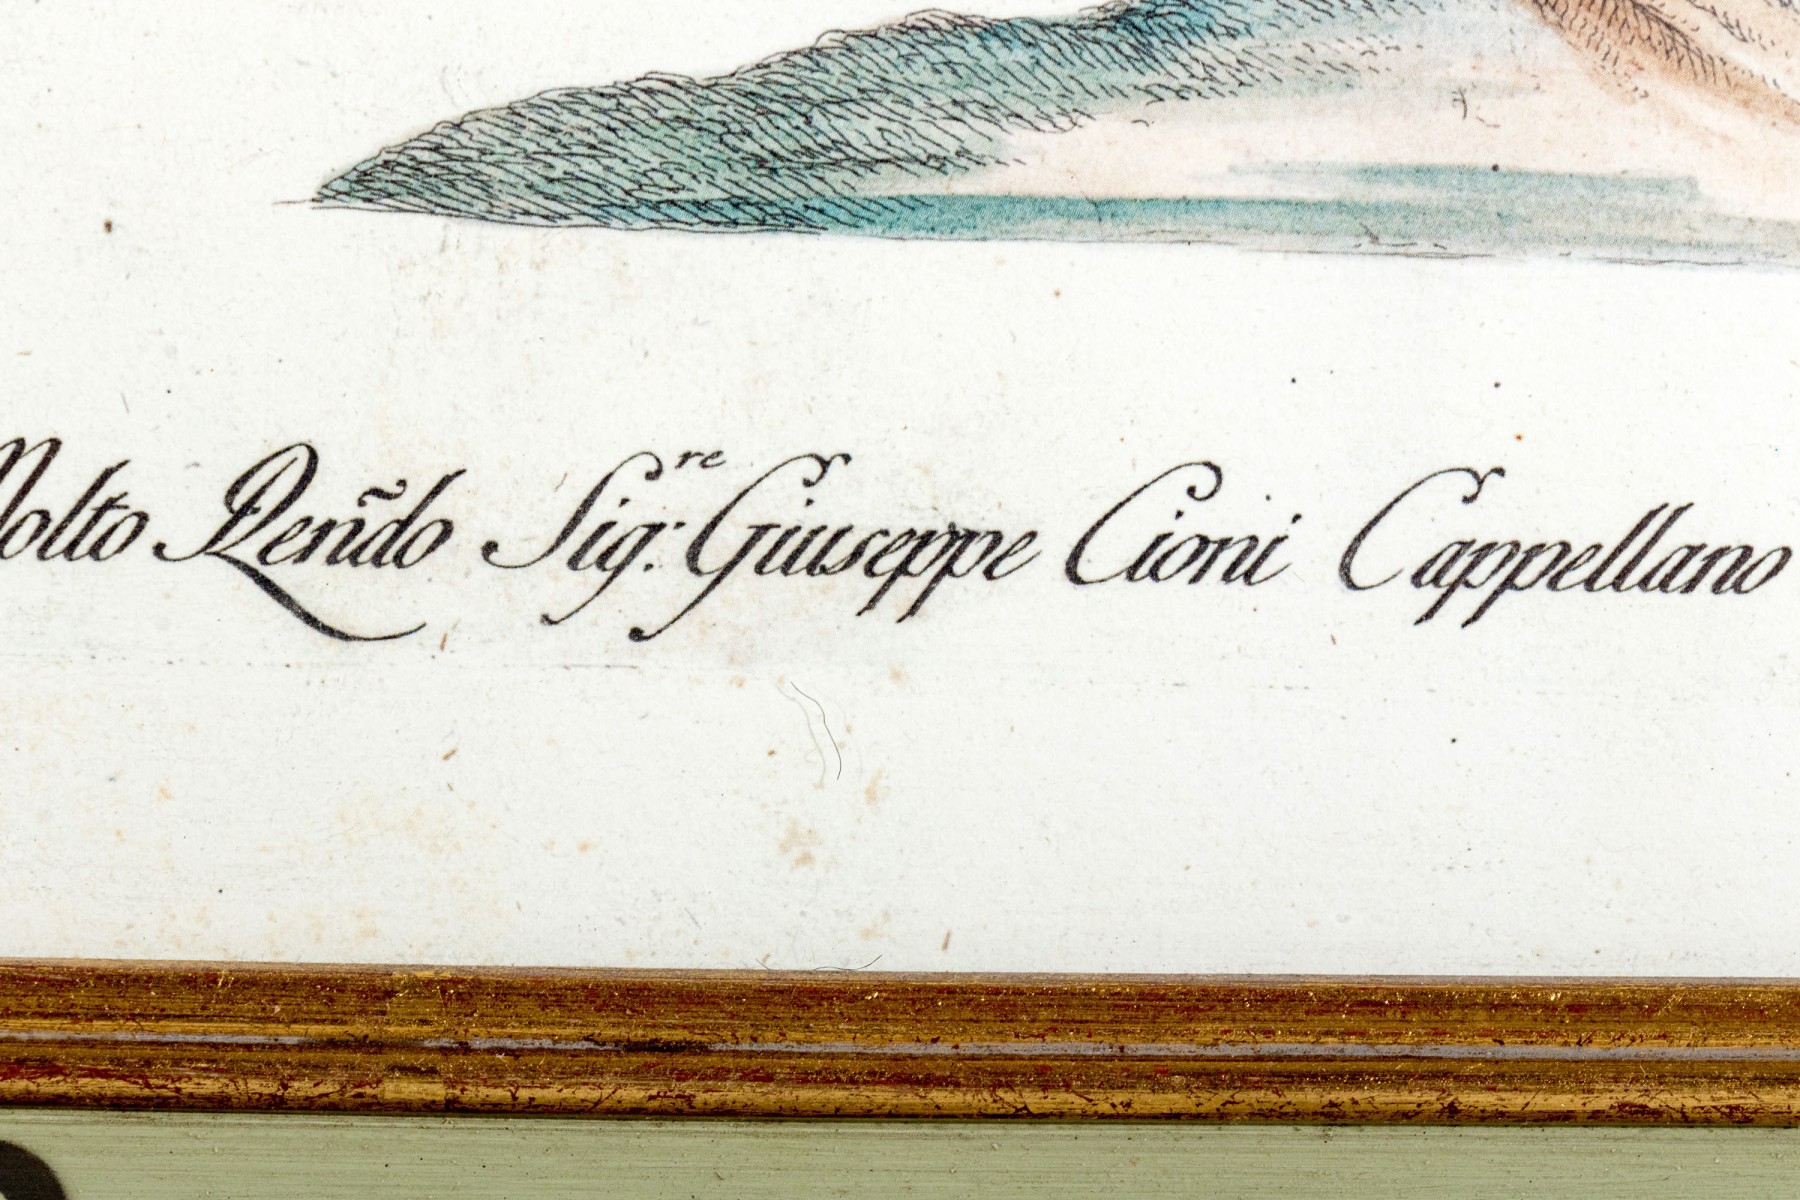 Molto Rendo Sig:re Giuseppe Cioni Cappellano